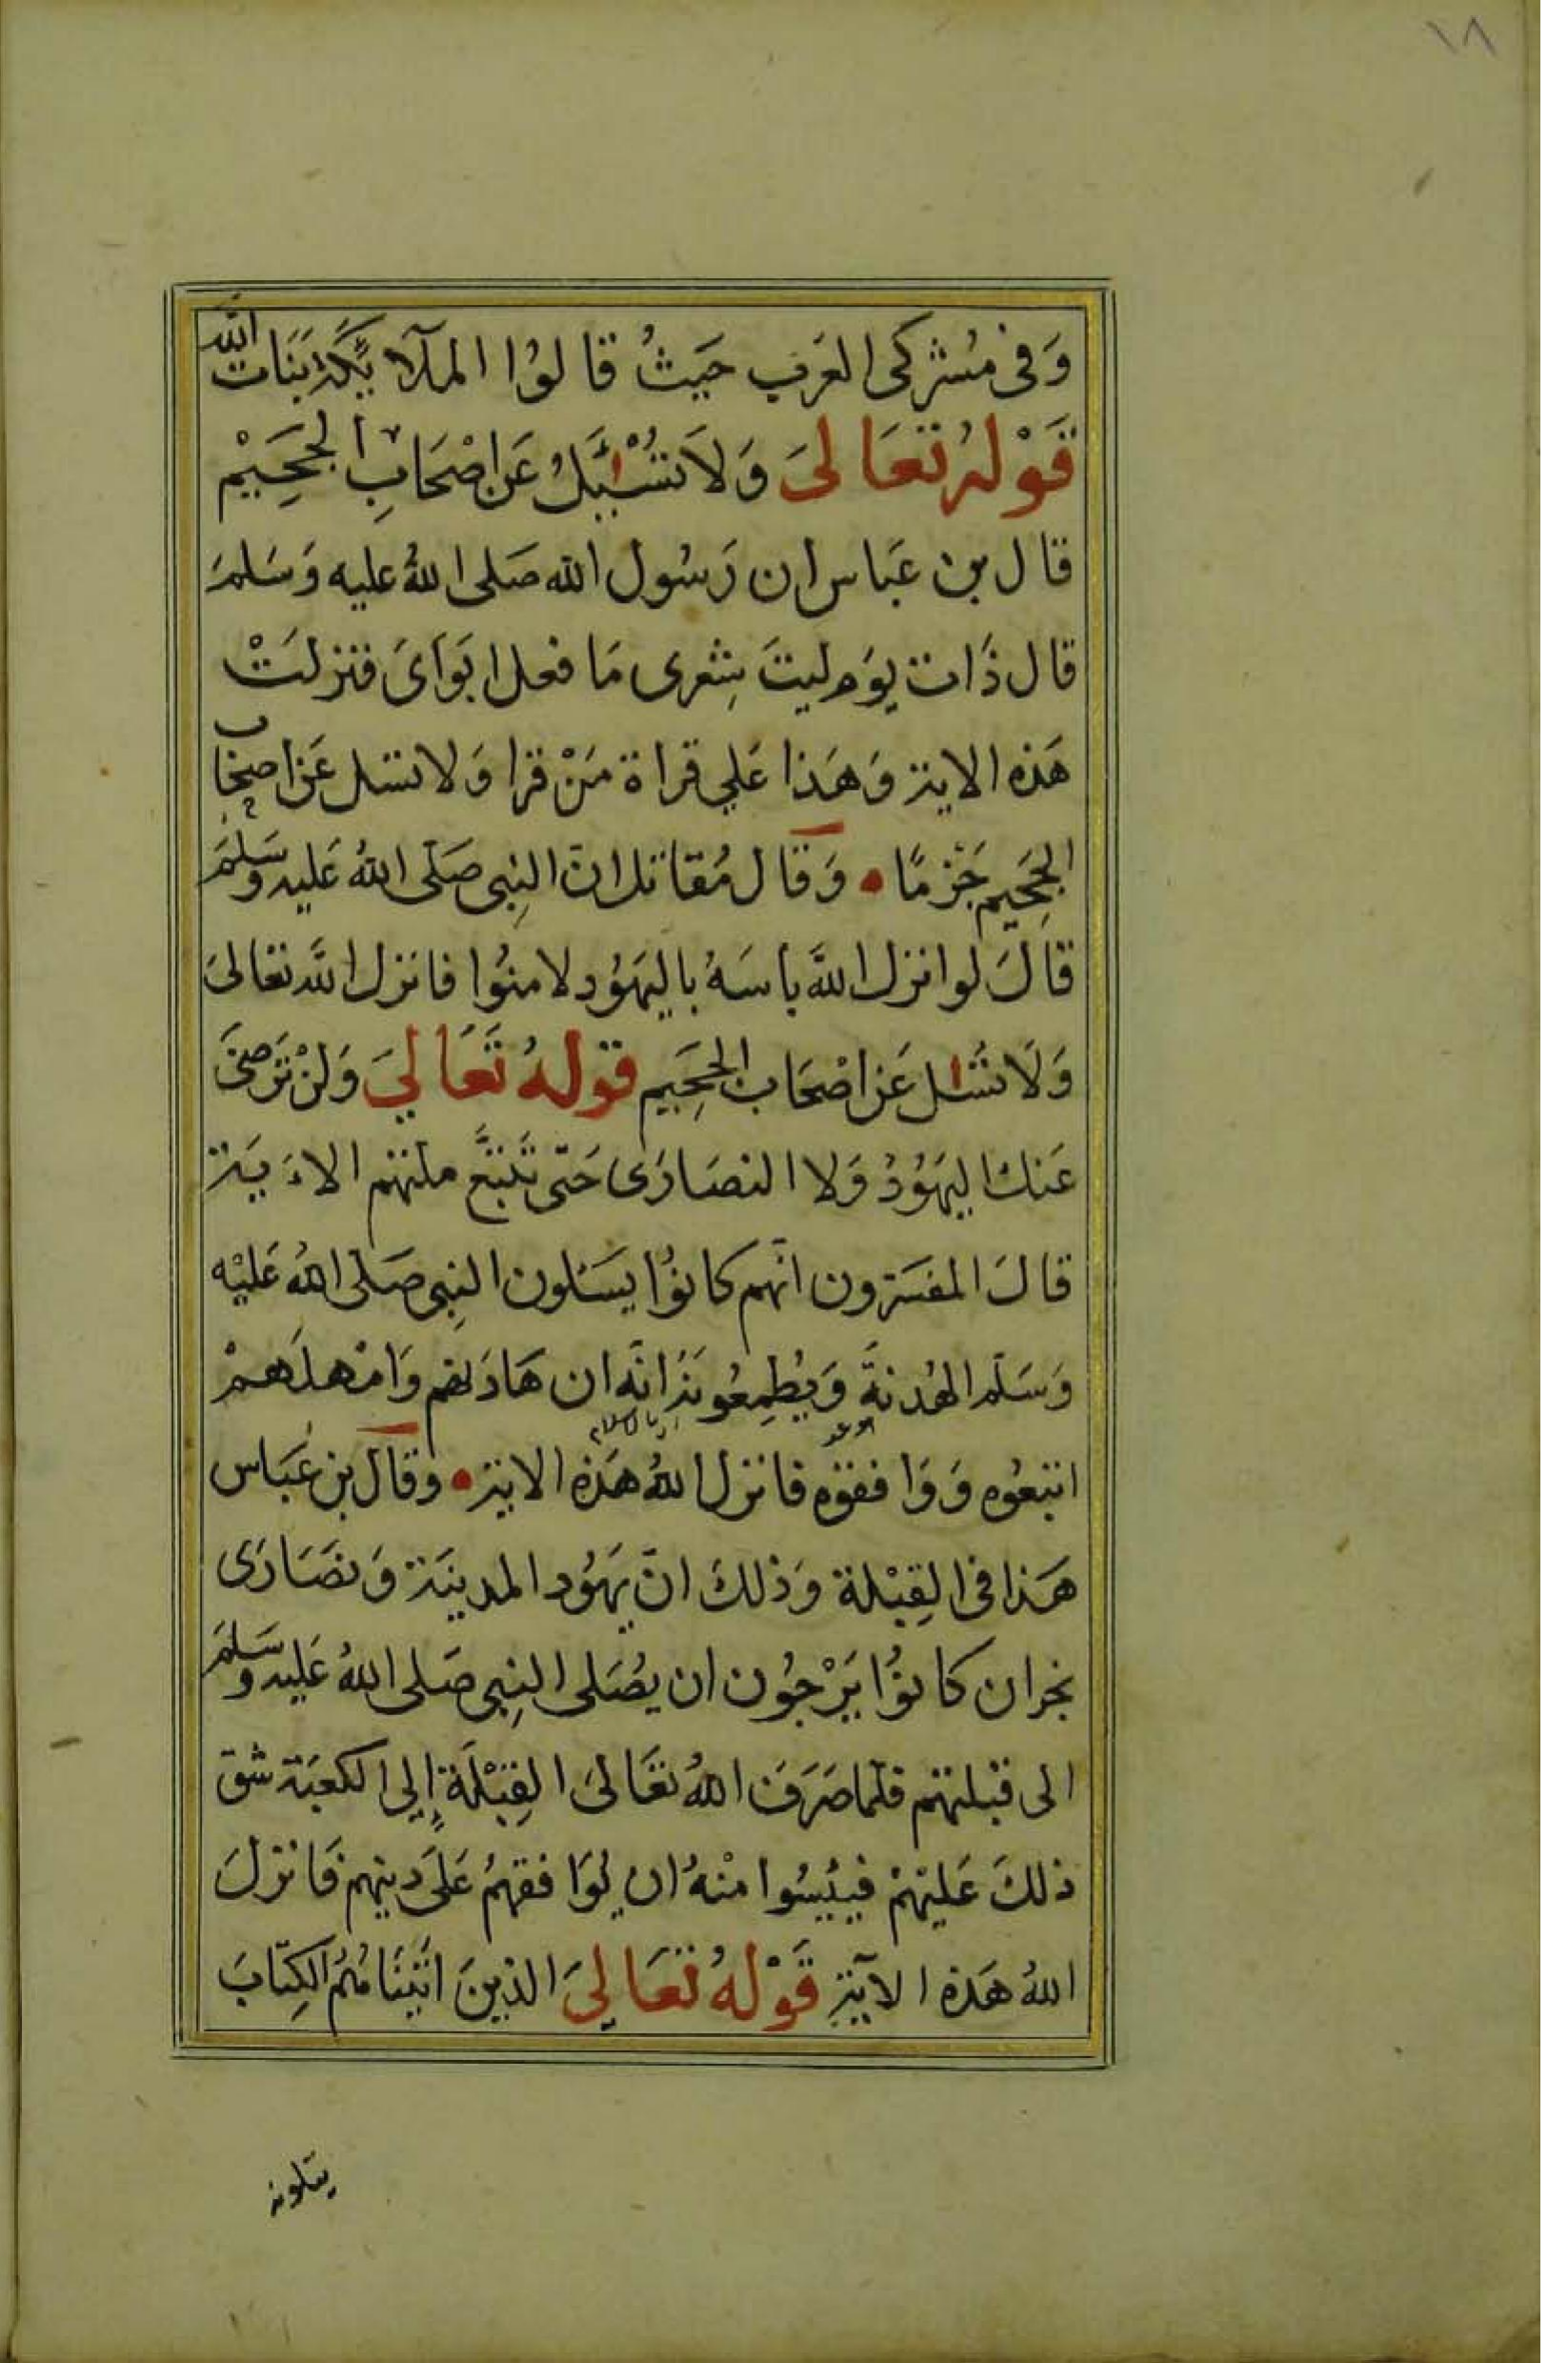 ١٨
وَفى مُشركى العَرب حَيثُ قالوُا الملآئكة بَنَات الله
قَوْلهُ تَعَالىَ وَلاَ تُسْئَلُ عَن اصْحَابِ الجَحِيْم
قال بن عَباس ان رَسُول الله صَلى اللهُ عليه وَسَلمَ
قال ذَات يوَم ليتَ شِعرى مَا فعل ابَوَاىَ فنزلتْ
هَذه الاية وَهَذا عَلي قراة مَنْ قرا وَلا تسئل عَن اصحَاب
الجَحِيم جَزمًا وَقال مُقاتل انّ النِبى صَلّى اللهُ عَليه وسَلمَ
قالَ لو انزل اللهَّ باسَهُ باليهَوُد لامنوُا فانزل اللهَّ تعَالىَ
وَلَا تُسْئل عَن اصْحَاب الجَحِيم قوْلهُ تَعَالىَ وَلنْ تَرضىَ
عَنكَ اليهَوُدُ وَلا النصَارَى حَتّى تَتَّبعَ ملتهم الاءَيَة
قالَ المفسّرون انّهم كانوُا يَسَئلون النِبى صَلّى اللهُ عَليْه
وَسَلّم الهُدنةَّ وَيُطِمعُونهُ انّه ان هَادَنهم وَامْهلَهمْ
اتبعُوه وَوَافقوُه فانزل اللهُ هَذه الاية وقال بن عَبَاس
هَذا فى القِبْلة وَذلكَ انّ يَهَوُد المدينَة وَنصَارَى
نجران كانوُا يَرْجوُن ان يُصَلى النِبى صَلى اللهُ عَليه وسَلمَ
الى قبلتهم فلمّا صَرَفَ اللهُ تعَالىَ القِبْلَة إلى الكعَبَة شق
ذلكَ عَليْهمْ فيئِسُوا منْهُ ان يُوَافقهُمُ عَلَى دينهم فَانزلَ
اللهُ هَذه الآية قَوْلهُ تعَالىَ الذينَ اتَيْنَاهُمُ الكِتَابَ
يتلونه